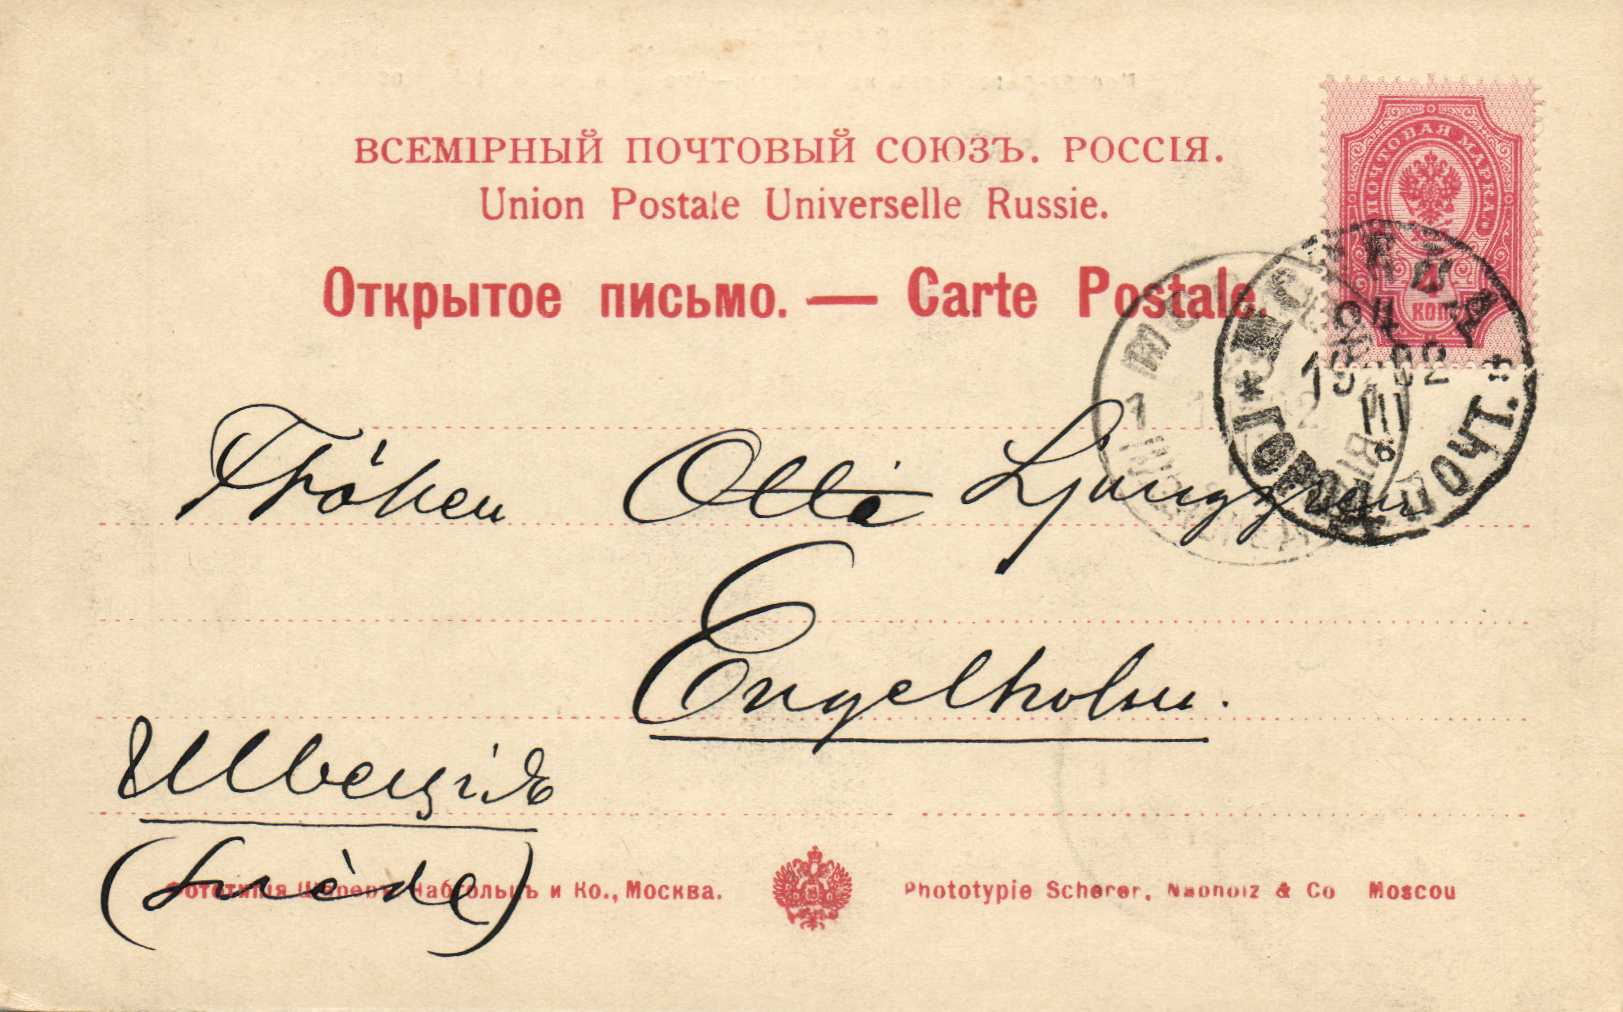 ВСЕМІРНЫЙ ПОЧТОВЫЙ СОЮЗЪ. РОССІЯ.
Union Postale Universelle Russie.
Открытое письмо. — Carte Postale.
ПОЧТОВАЯ МАРКА
4
КОП.
МОСКВА
24
1902
III
ГОРОД. ПОЧТ.
Fröken Olli Ljunggren
Engelholm.
Швеція
(Suède)
Фототипія Шереръ, Набгольцъ и Ко., Москва.
Phototypie Scherer, Nabholz & Co Moscou